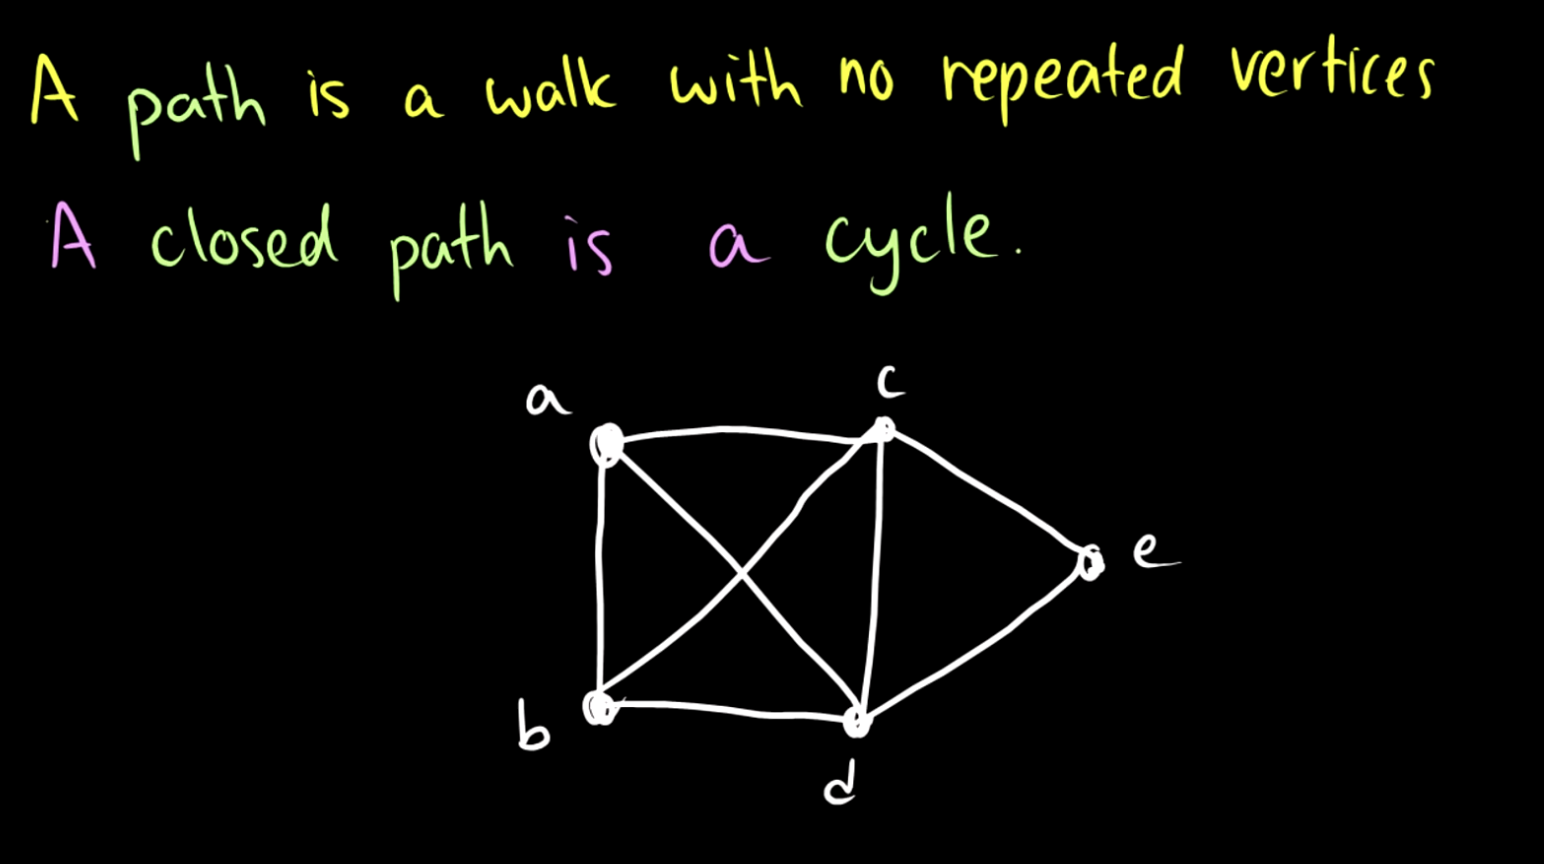 A path is a walk with no repeated vertices
A closed path is a cycle.
a
c
e
b
d